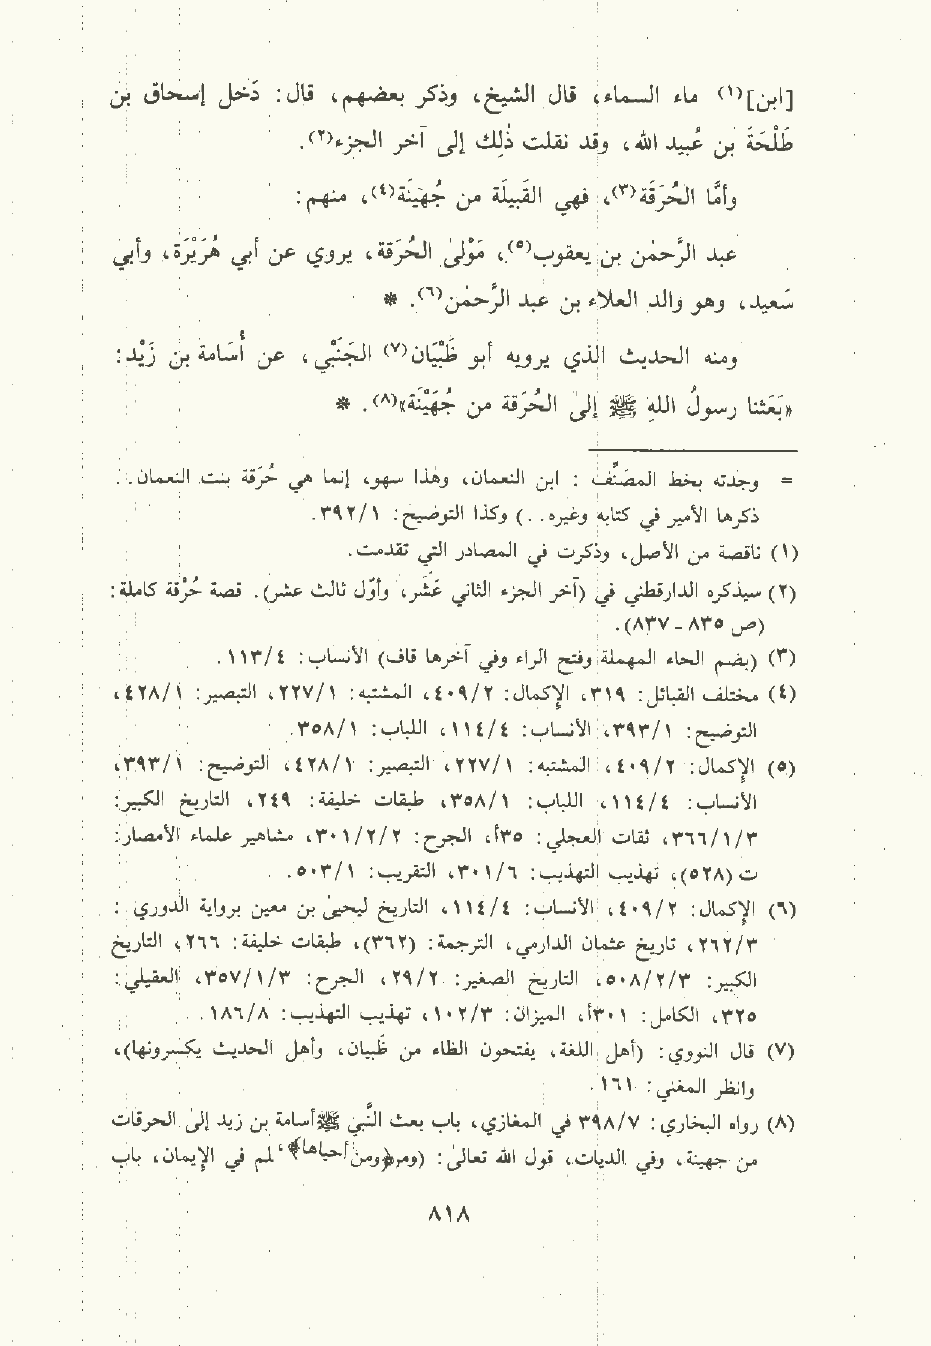 [ابن]⁽¹⁾ ماء السماء، قال الشيخ، وذكر بعضهم، قال: دَخل إسحاق بن
طَلْحَةَ بن عُبيد الله، وقد نقلت ذٰلِك إلى آخر الجزء⁽²⁾.
وأمَّا الحُرَقَة⁽³⁾، فهي القَبيلَة من جُهَيْنَة⁽⁴⁾، منهم:
عبد الرَّحمٰن بن يعقوب⁽⁵⁾، مَوْلَىٰ الحُرَقة، يروي عن أبي هُرَيْرَة، وأبي
سَعيد، وهو والد العلاء بن عبد الرَّحمٰن⁽⁶⁾. *
ومنه الحديث الذي يرويه أبو ظَبْيَان⁽⁷⁾ الجَنْبِي، عن أُسَامة بن زَيْد:
«بَعَثنا رسولُ اللهِ ﷺ إلىٰ الحُرَقة من جُهَيْنَة»⁽⁸⁾. *
= وجدته بخط المصَنَّف : ابن النعمان، وهٰذا سهو، إنما هي حُرَقة بنت النعمان. .
ذكرها الأمير في كتابه وغيره. .) وكذا التوضيح: ٣٩٢/١.
(١) ناقصة من الأصل، وذكرت في المصادر التي تقدمت.
(٢) سيذكره الدارقطني في (آخر الجزء الثاني عَشَر، وأوّل ثالث عشر). قصة حُرْقة كاملة:
(ص ٨٣٥ - ٨٣٧).
(٣) (بضم الحاء المهملة وفتح الراء وفي آخرها قاف) الأنساب: ١١٣/٤.
(٤) مختلف القبائل: ٣١٩، الإكمال: ٤٠٩/٢، المشتبه: ٢٢٧/١، التبصير: ٤٢٨/١،
التوضيح: ٣٩٣/١، الأنساب: ١١٤/٤، اللباب: ٣٥٨/١.
(٥) الإكمال: ٤٠٩/٢، المشتبه: ٢٢٧/١، التبصير: ٤٢٨/١، التوضيح: ٣٩٣/١،
الأنساب: ١١٤/٤، اللباب: ٣٥٨/١، طبقات خليفة: ٢٤٩، التاريخ الكبير:
٣٦٦/١/٣، ثقات العجلي: ٣٥أ، الجرح: ٣٠١/٢/٢، مشاهير علماء الأمصار:
ت(٥٢٨)، تهذيب التهذيب: ٣٠١/٦، التقريب: ٥٠٣/١.
(٦) الإكمال: ٤٠٩/٢، الأنساب: ١١٤/٤، التاريخ ليحيىٰ بن معين برواية الدوري :
٢٦٢/٣، تاريخ عثمان الدارمي، الترجمة: (٣٦٢)، طبقات خليفة: ٢٦٦، التاريخ
الكبير: ٥٠٨/٢/٣، التاريخ الصغير: ٢٩/٢، الجرح: ٣٥٧/١/٣، العقيلي:
٣٢٥، الكامل: ٣٠١أ، الميزان: ١٠٢/٣، تهذيب التهذيب: ١٨٦/٨.
(٧) قال النووي: (أهل اللغة، يفتحون الظاء من ظَبيان، وأهل الحديث يكسرونها)،
وانظر المغني: ١٦١.
(٨) رواه البخاري: ٣٩٨/٧ في المغازي، باب بعث النَّبي ﷺ أسامة بن زيد إلىٰ الحرقات
من جهينة، وفي الديات، قول الله تعالىٰ: (ومن أحياها)، لم في الإيمان، باب
٨١٨